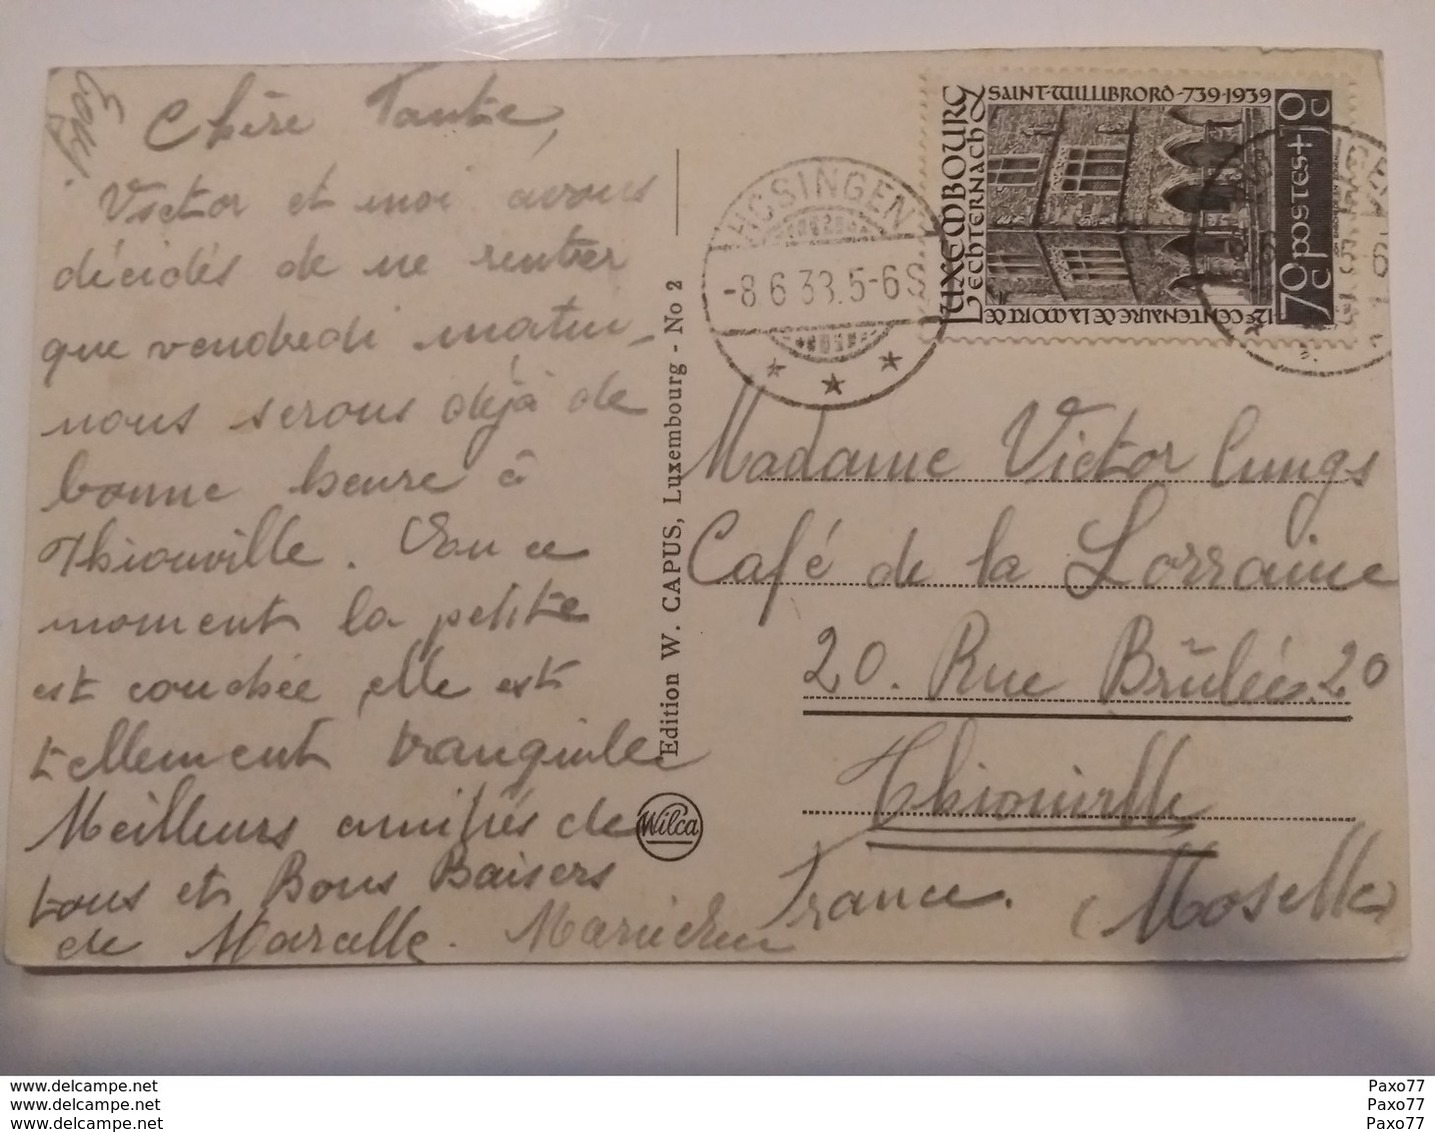 Chère Tante,
Victor et moi avons
décidés de ne rentrer
que vendredi matin,
nous serons déjà de
bonne heure à
Thionville. En ce
moment la petite
est couchée elle est
tellement tranquille
Meilleurs amitiés de
tous et Bons Baisers
de Marcelle.
Edition W. CAPUS, Luxembourg - No 2
Wilca
HOSINGEN
-8.6 38.5-6S
LUXEMBOURG
ECHTERNACH
SAINT·WILLIBRORD·739·1939
CENTENAIRE DE LA MORT DE
70c POSTES 10c
Madame Victor Cungs
Café de la Lorraine
20. Rue Brûlée 20
Thionville
France. (Moselle)
www.delcampe.net
www.delcampe.net
www.delcampe.net
Paxo77
Paxo77
Paxo77